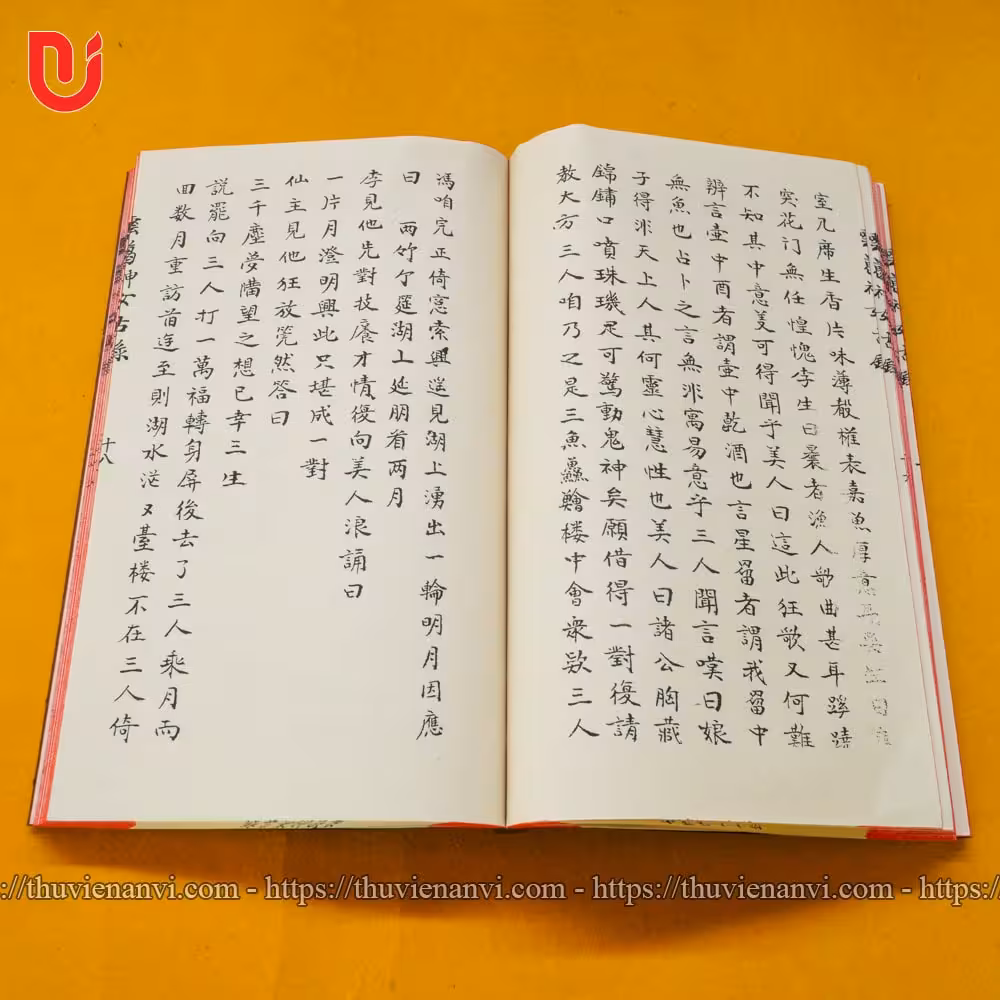 室几席生香片味薄殽權表嘉魚厚意
突花汀無任惶愧李生曰曩者漁人歌曲甚耳蹊蹺
不知其中意美可得聞乎美人曰這此狂歌又何難
辨言壺中酉者謂壺中乾酒也言星畱者謂我畱中
無魚也占卜之言無非寓易意乎三人聞言嘆曰娘
子得非天上人其何靈心慧性也美人曰諸公胸藏
錦鏽口噴珠璣足可驚動鬼神矣願借得一對復請
教大方三人咱乃之是三魚鱻鱠楼中會衆欵三人
馮咱完正倚窓索興遥見湖上湧出一輪明月因應
曰 兩竹尓筵湖上延朋看两月
李見他先對技癢才情復向美人浪誦曰
一片月澄明興此只堪成一對
仙主見他狂放筦然答曰
三千塵夢隔望之想已幸三生
説罷向三人打一萬福轉身屏後去了三人乘月而
回数月重訪首迳至則湖水茫又臺楼不在三人倚
神女古录
十八
https://thuvienanvi.com - https://thuvienanvi.com - https://thuvienanvi.com